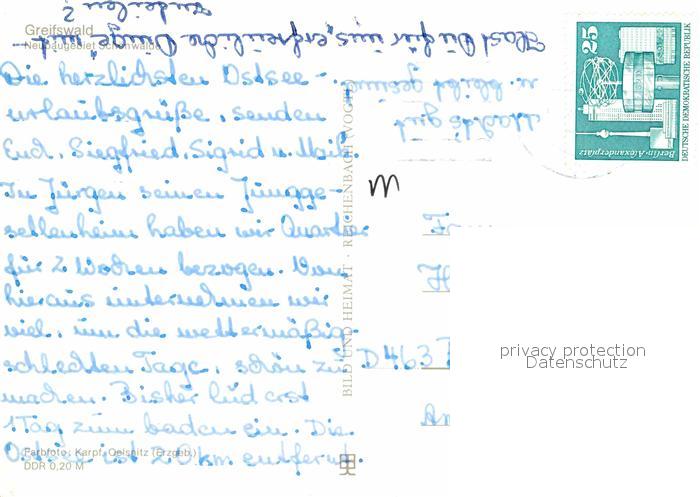 Greifswald
Neubaugebiet Schönwalde
Die herzlichsten Ostsee-
urlaubsgrüße, senden
Euch, Siegfried, Sigrid u. Maik.
In Jürgen seinem Jungge-
sellenheim haben wir Quartier
für 2 Wochen bezogen. Von
hieraus unternehmen wir
viel, um die wettermäßig
schlechten Tage, schön zu
machen. Bisher lud erst
1 Tag zum baden ein. Die
Ostsee ist 20 km entfernt.
Hast Du für uns "erfreuliche Dinge" mit-
zuteilen?
Macht's gut
u. bleibt gesund
M
BILD UND HEIMAT · REICHENBACH VOGTL
Farbfoto: Karpf, Oelsnitz (Erzgeb.)
DDR 0,20 M
25
Berlin-Alexanderplatz
DEUTSCHE DEMOKRATISCHE REPUBLIK
D 4637
privacy protection
Datenschutz